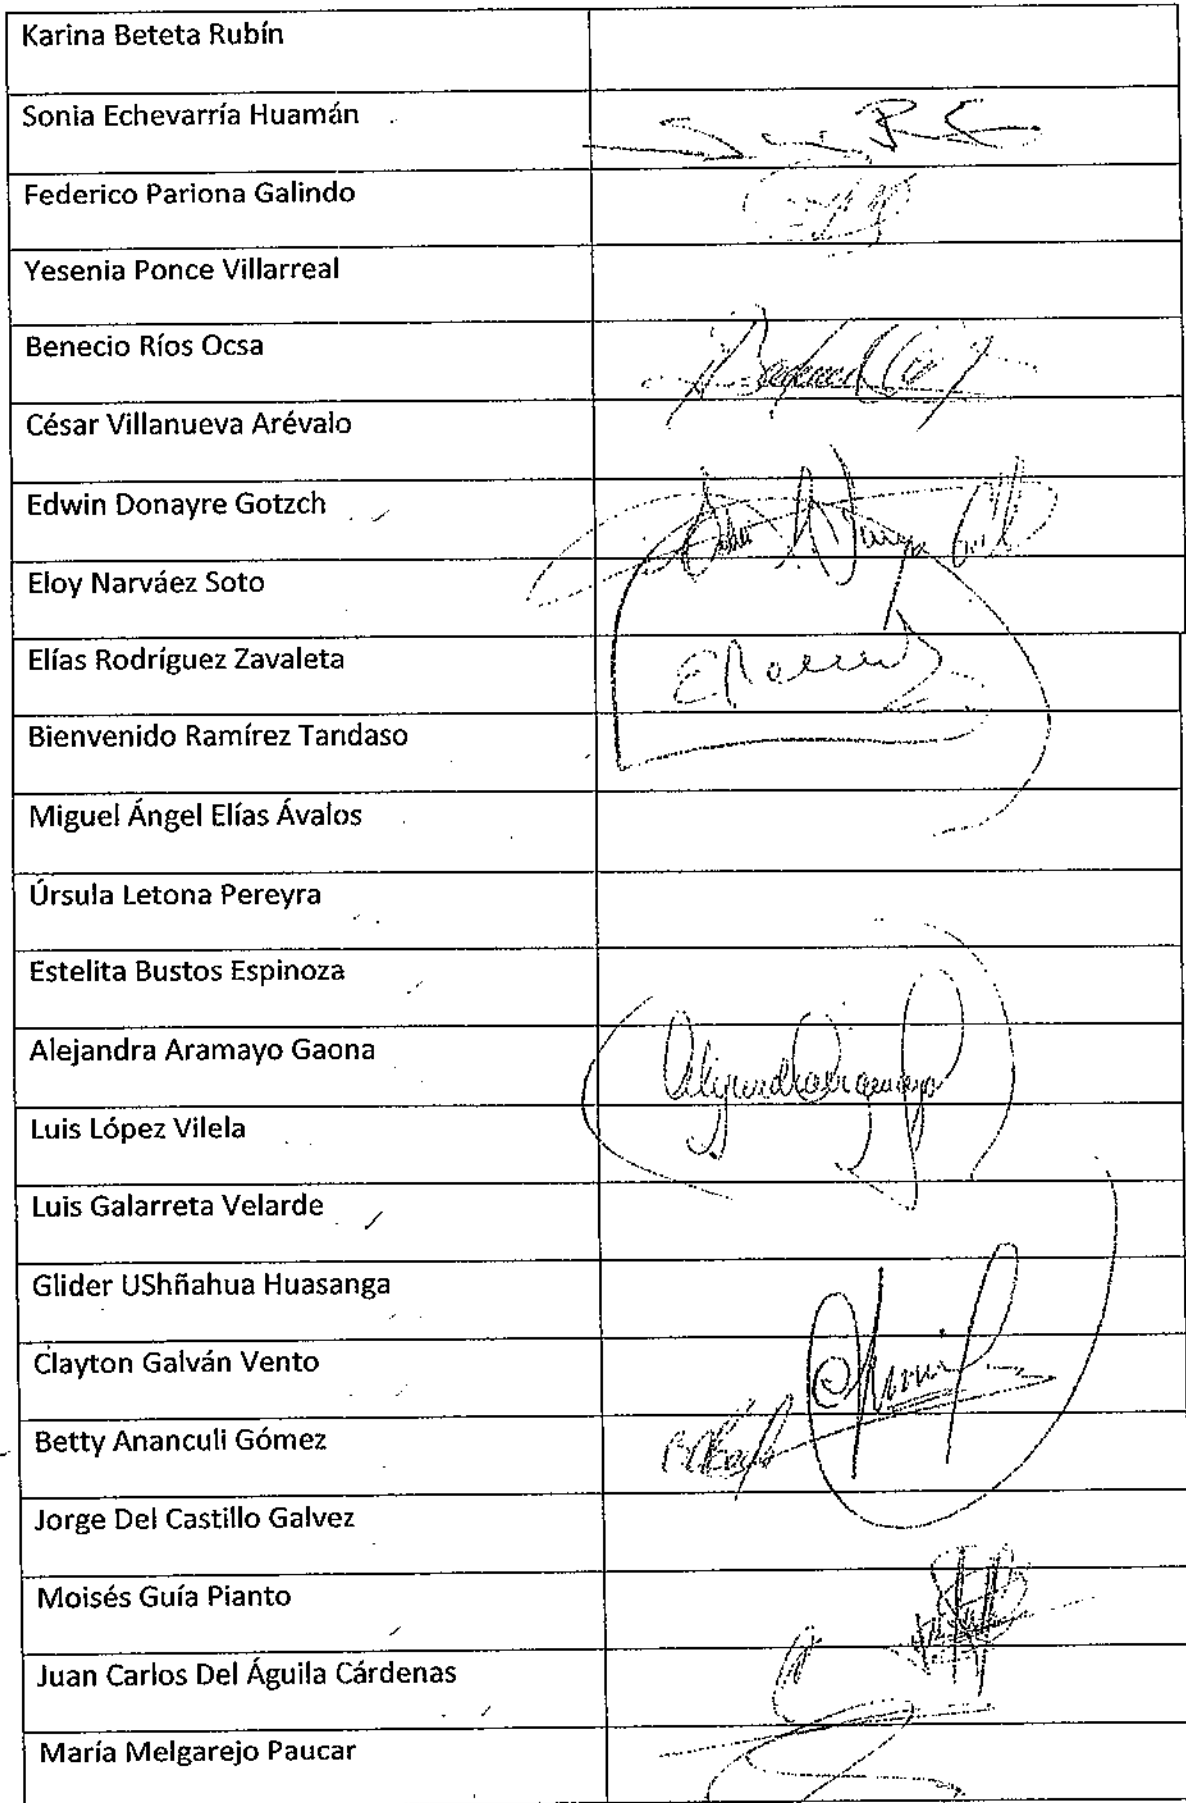 Karina Beteta Rubín
Sonia Echevarría Huamán
Federico Pariona Galindo
Yesenia Ponce Villarreal
Benecio Ríos Ocsa
César Villanueva Arévalo
Edwin Donayre Gotzch
Eloy Narváez Soto
Elías Rodríguez Zavaleta
Bienvenido Ramírez Tandaso
Miguel Ángel Elías Ávalos
Úrsula Letona Pereyra
Estelita Bustos Espinoza
Alejandra Aramayo Gaona
Luis López Vilela
Luis Galarreta Velarde
Glider UShñahua Huasanga
Clayton Galván Vento
Betty Ananculi Gómez
Jorge Del Castillo Galvez
Moisés Guía Pianto
Juan Carlos Del Águila Cárdenas
María Melgarejo Paucar